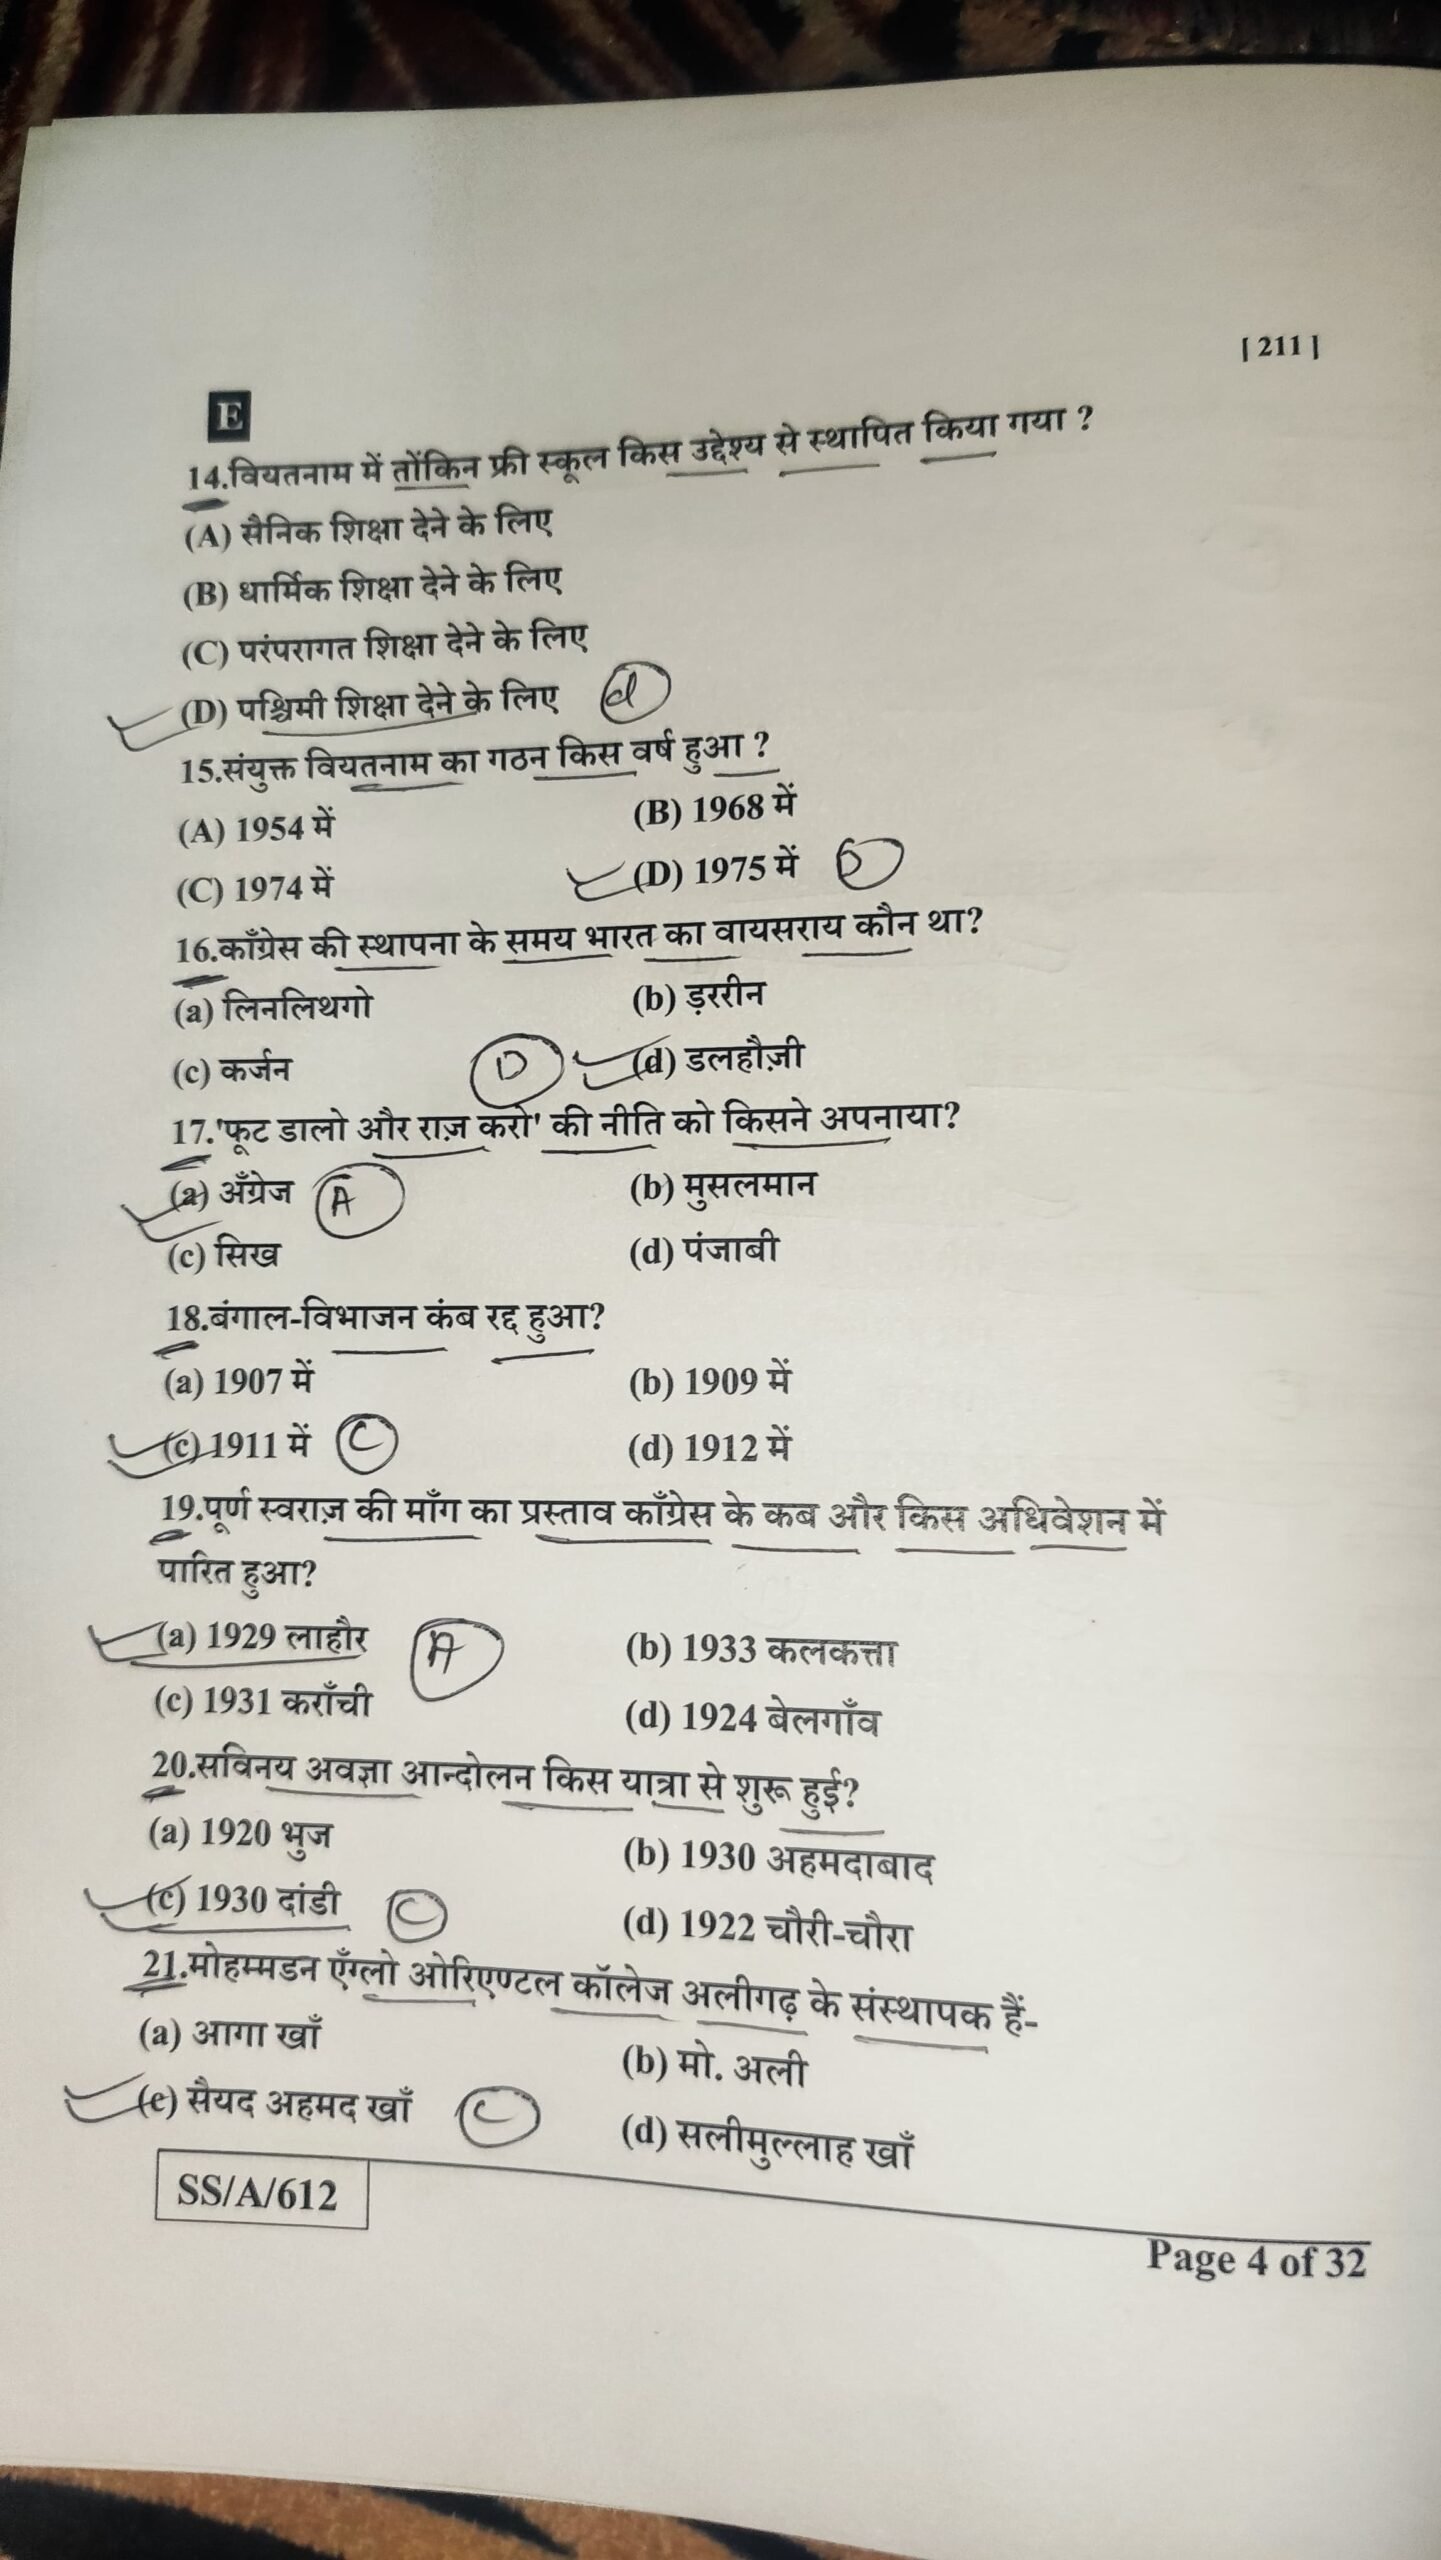 [ 211 ]
E
14.वियतनाम में तोंकिन फ्री स्कूल किस उद्देश्य से स्थापित किया गया ?
(A) सैनिक शिक्षा देने के लिए
(B) धार्मिक शिक्षा देने के लिए
(C) परंपरागत शिक्षा देने के लिए
(D) पश्चिमी शिक्षा देने के लिए d
15.संयुक्त वियतनाम का गठन किस वर्ष हुआ ?
(A) 1954 में (B) 1968 में
(C) 1974 में (D) 1975 में D
16.काँग्रेस की स्थापना के समय भारत का वायसराय कौन था?
(a) लिनलिथगो (b) ड़ररीन
(c) कर्जन D (d) डलहौज़ी
17.'फूट डालो और राज़ करो' की नीति को किसने अपनाया?
(a) अँग्रेज A (b) मुसलमान
(c) सिख (d) पंजाबी
18.बंगाल-विभाजन कंब रद्द हुआ?
(a) 1907 में (b) 1909 में
(c) 1911 में C (d) 1912 में
19.पूर्ण स्वराज़ की माँग का प्रस्ताव काँग्रेस के कब और किस अधिवेशन में
पारित हुआ?
(a) 1929 लाहौर A (b) 1933 कलकत्ता
(c) 1931 कराँची (d) 1924 बेलगाँव
20.सविनय अवज्ञा आन्दोलन किस यात्रा से शुरू हुई?
(a) 1920 भुज (b) 1930 अहमदाबाद
(c) 1930 दांडी C (d) 1922 चौरी-चौरा
21.मोहम्मडन एँग्लो ओरिएण्टल कॉलेज अलीगढ़ के संस्थापक हैं-
(a) आगा खाँ (b) मो. अली
(c) सैयद अहमद खाँ C (d) सलीमुल्लाह खाँ
SS/A/612
Page 4 of 32